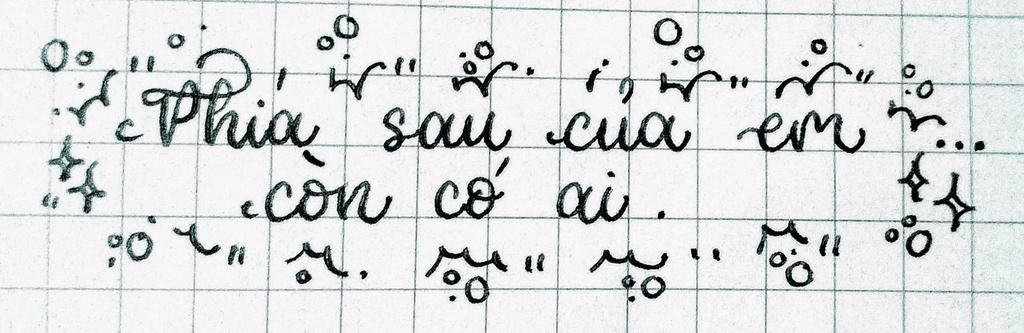 Phía sau của em...
còn có ai.